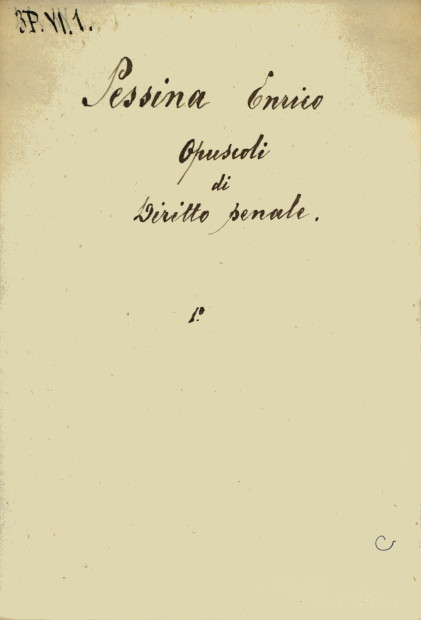 3P.VI.1.
Pessina Enrico
Opuscoli
di
Diritto penale.
1º
C